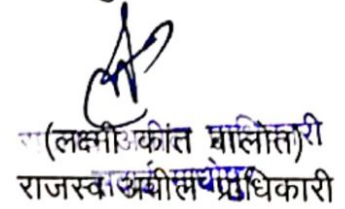 (लक्ष्मी कांत बालोत)
राजस्व अपील प्राधिकारी